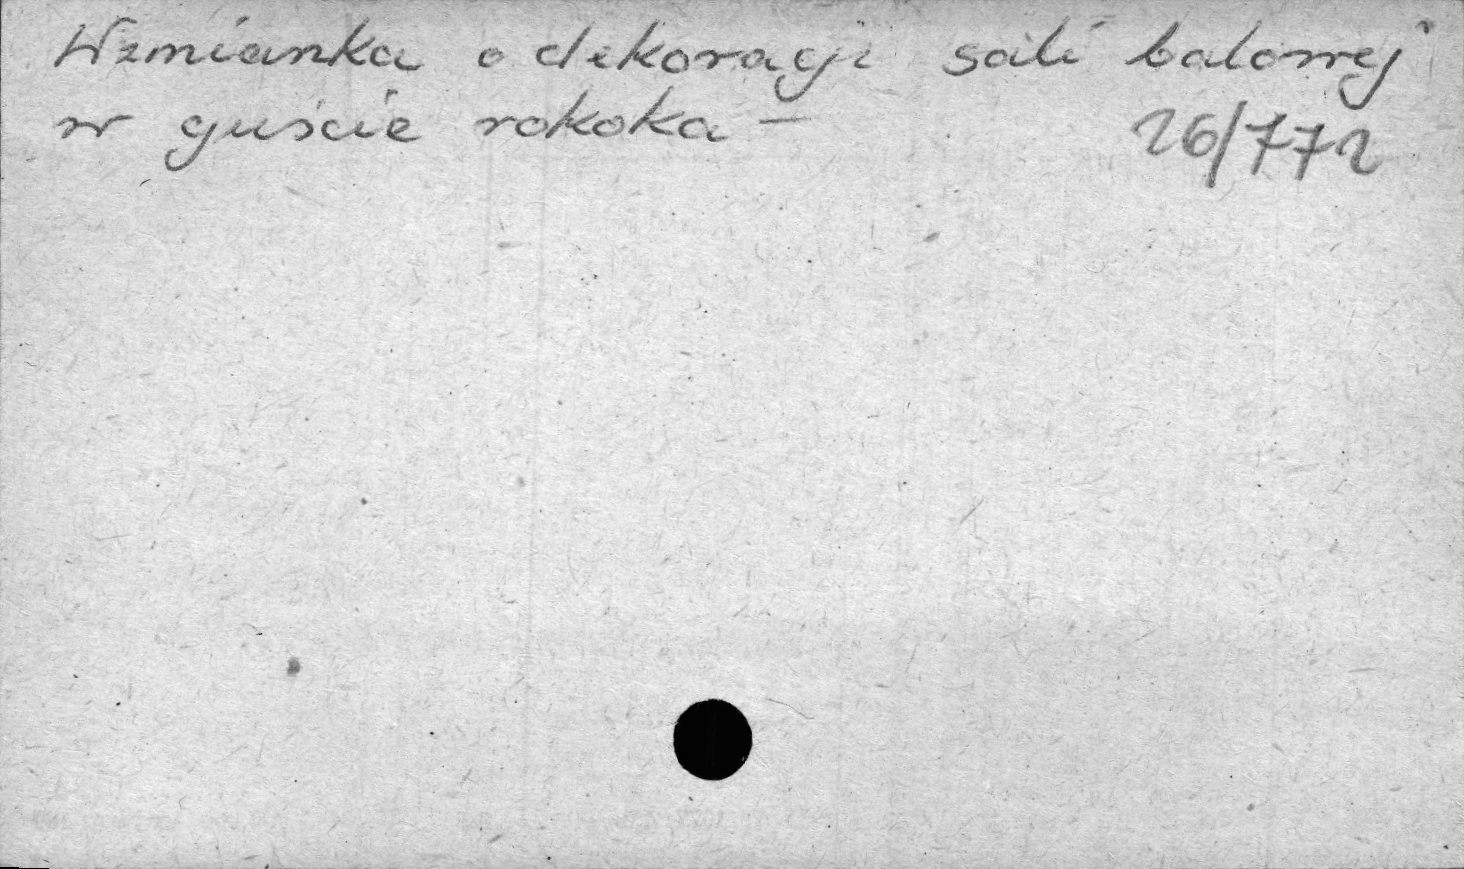 Wzmianka o dekoracji sali balowej
w guście rokoka — 26/772